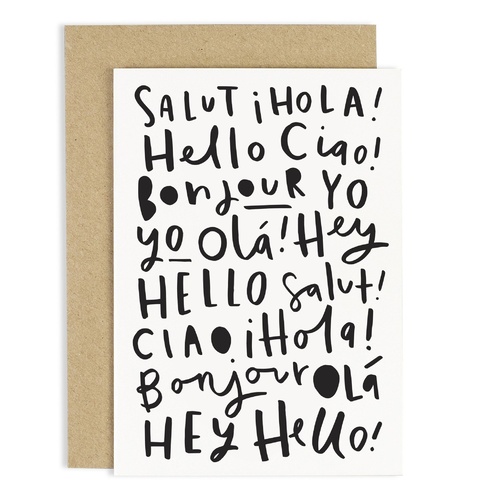 SALUT ¡HOLA!
Hello Ciao!
BonjoUR YO
yo Olá! Hey
HELLO Salut!
CIAO ¡Hola!
Bonjour OLÁ
HEY Hello!